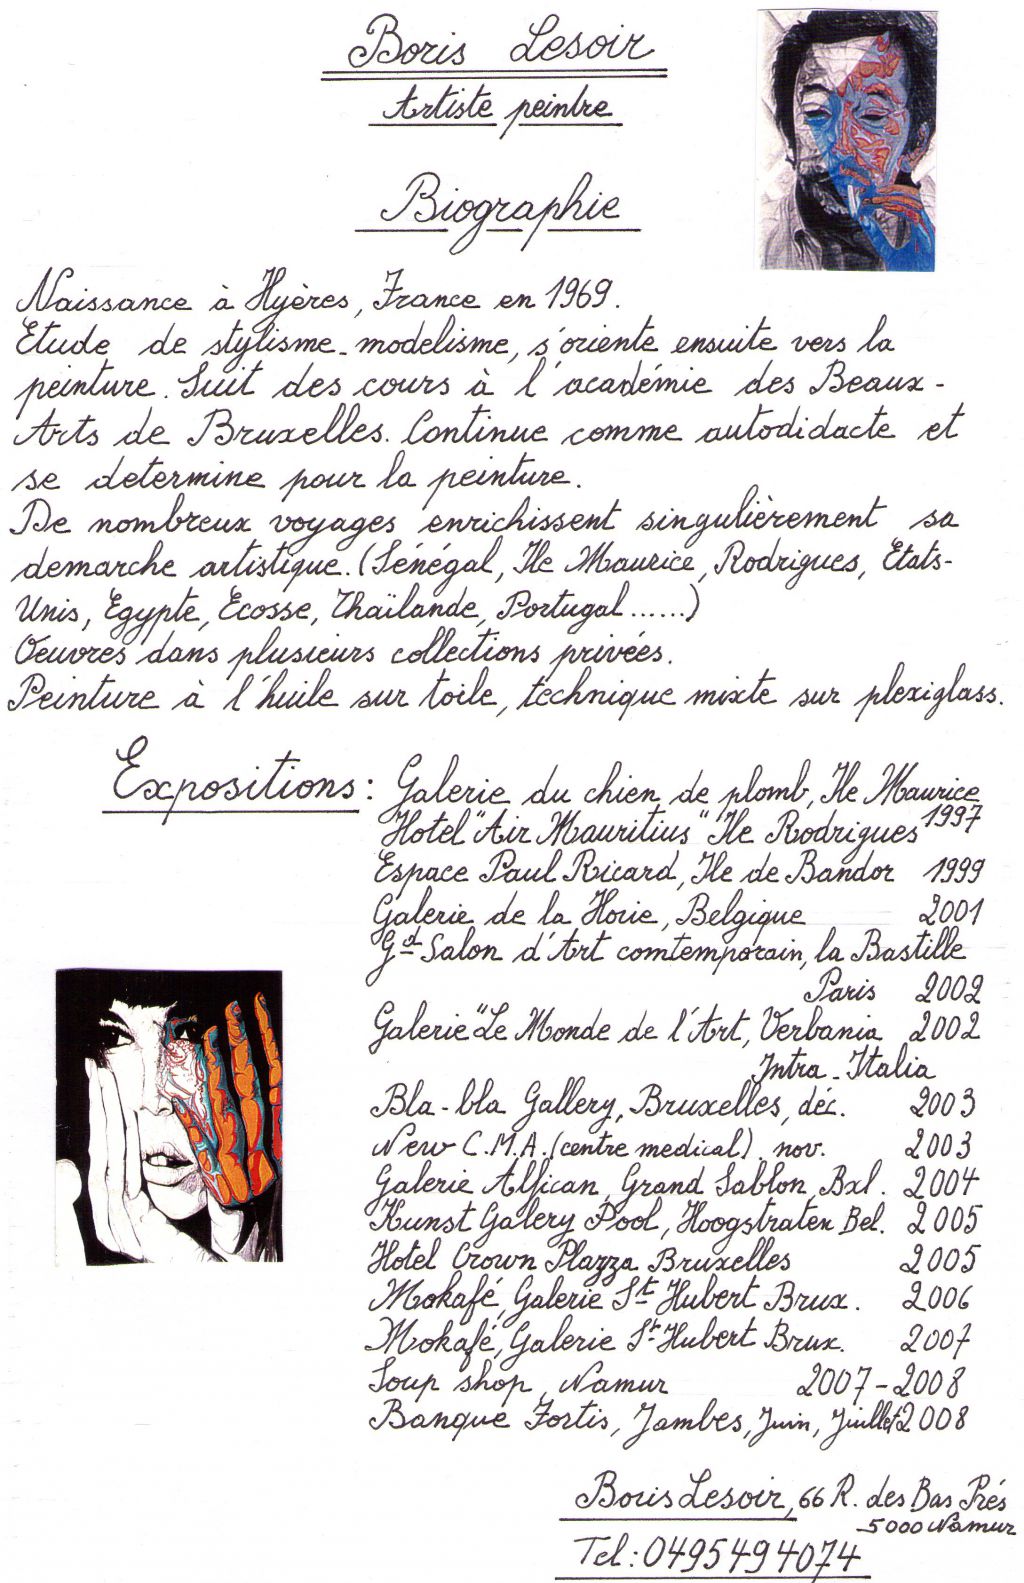 Boris Lesoir
Artiste peintre
Biographie
Naissance à Hyères, France en 1969.
Etude de stylisme-modelisme, s'oriente ensuite vers la
peinture. Suit des cours à l'académie des Beaux-
Arts de Bruxelles. Continue comme autodidacte et
se determine pour la peinture.
De nombreux voyages enrichissent singulièrement sa
demarche artistique. (Sénégal, Ile Maurice, Rodrigues, Etats-
Unis, Egypte, Ecosse, Thaïlande, Portugal......)
Oeuvres dans plusieurs collections privées.
Peinture à l'huile sur toile, technique mixte sur plexiglass.
Expositions: Galerie du chien de plomb, Ile Maurice
Hotel "Air Mauritius" Ile Rodrigues 1997
Espace Paul Ricard, Ile de Bandor 1999
Galerie de la Horie, Belgique 2001
Gd Salon d'Art comtemporain, la Bastille
Paris 2002
Galerie "Le Monde de l'Art, Verbania 2002
Intra-Italia
Bla-bla Gallery, Bruxelles, déc. 2003
New C.M.A. (centre medical). nov. 2003
Galerie Alfican, Grand Sablon, Bxl. 2004
Kunst Galery Pool, Hoogstraten Bel. 2005
Hotel Crown Plazza Bruxelles 2005
Mokafé, Galerie St Hubert Brux. 2006
Mokafé, Galerie St Hubert Brux. 2007
Soup shop, Namur 2007-2008
Banque Fortis, Jambes, Juin, Juillet 2008
Boris Lesoir, 66 R. des Bas Prés
5000 Namur
Tel: 0495494074